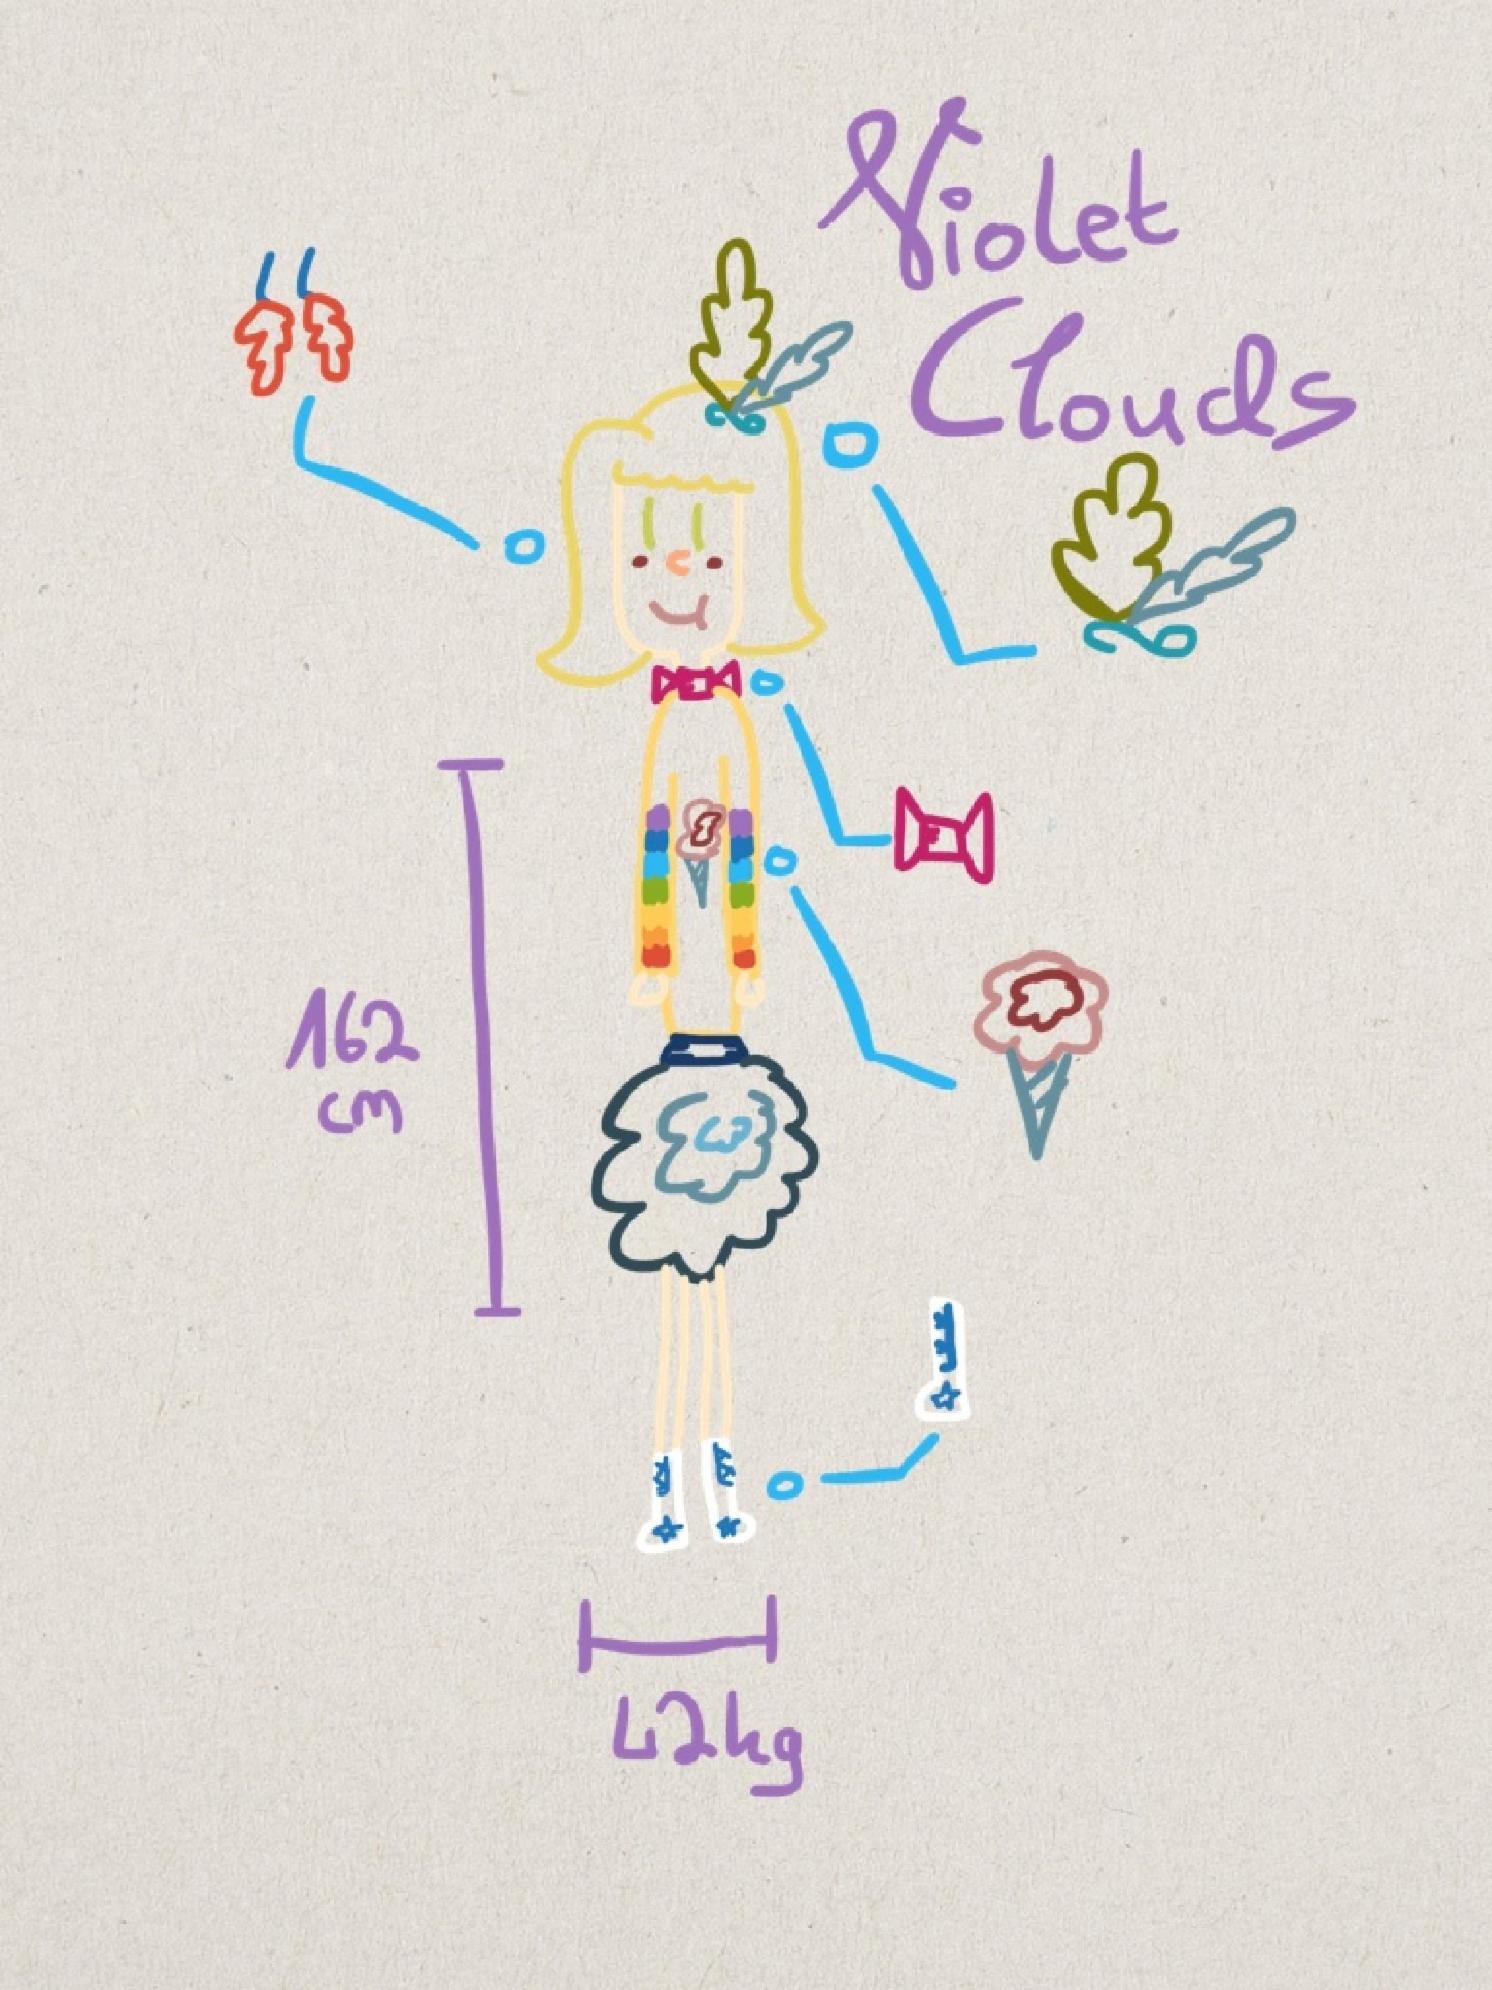 Violet
Clouds
162
cm
42kg